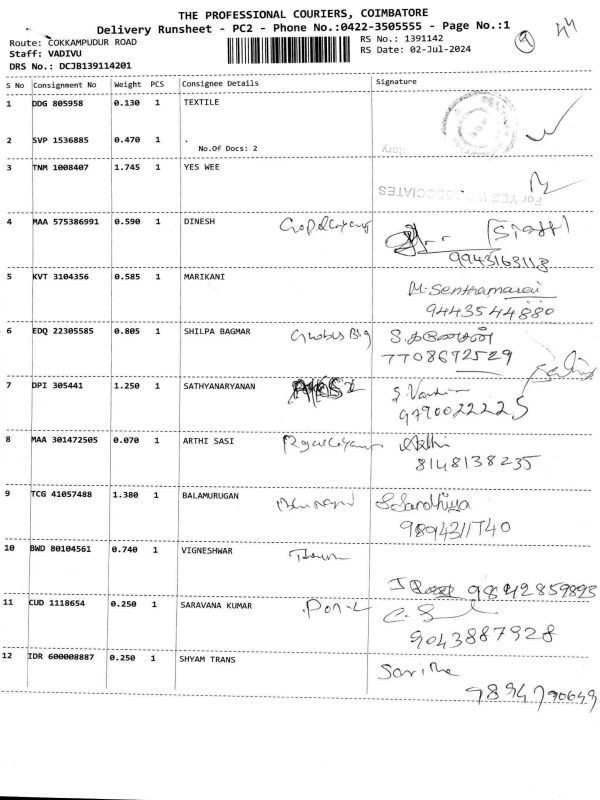 THE PROFESSIONAL COURIERS, COIMBATORE
Delivery Runsheet - PC2 - Phone No.:0422-3505555 - Page No.:1
Route: COKKAMPUDUR ROAD
RS No.: 1391142
Staff: VADIVU
RS Date: 02-Jul-2024
DRS No.: DCJB139114201
S No Consignment No Weight PCS Consignee Details Signature
1 DDG 805958 0.130 1 TEXTILE
2 SVP 1536885 0.470 1 .
No.Of Docs: 2
3 TNM 1008407 1.745 1 YES WEE
For YES WEE ASSOCIATES
4 MAA 575386991 0.590 1 DINESH
9943163118
5 KVT 3104356 0.585 1 MARIKANI
M. Senthamarai
9443544880
6 EDQ 22305585 0.805 1 SHILPA BAGMAR
7708672529
7 DPI 305441 1.250 1 SATHYANARYANAN
9790022225
8 MAA 301472505 0.070 1 ARTHI SASI Arthi
8148138235
9 TCG 41057488 1.380 1 BALAMURUGAN
9894311740
10 BWD 80104561 0.740 1 VIGNESHWAR
9842859893
11 CUD 1118654 0.250 1 SARAVANA KUMAR
9043887928
12 IDR 600008887 0.250 1 SHYAM TRANS
9894790649